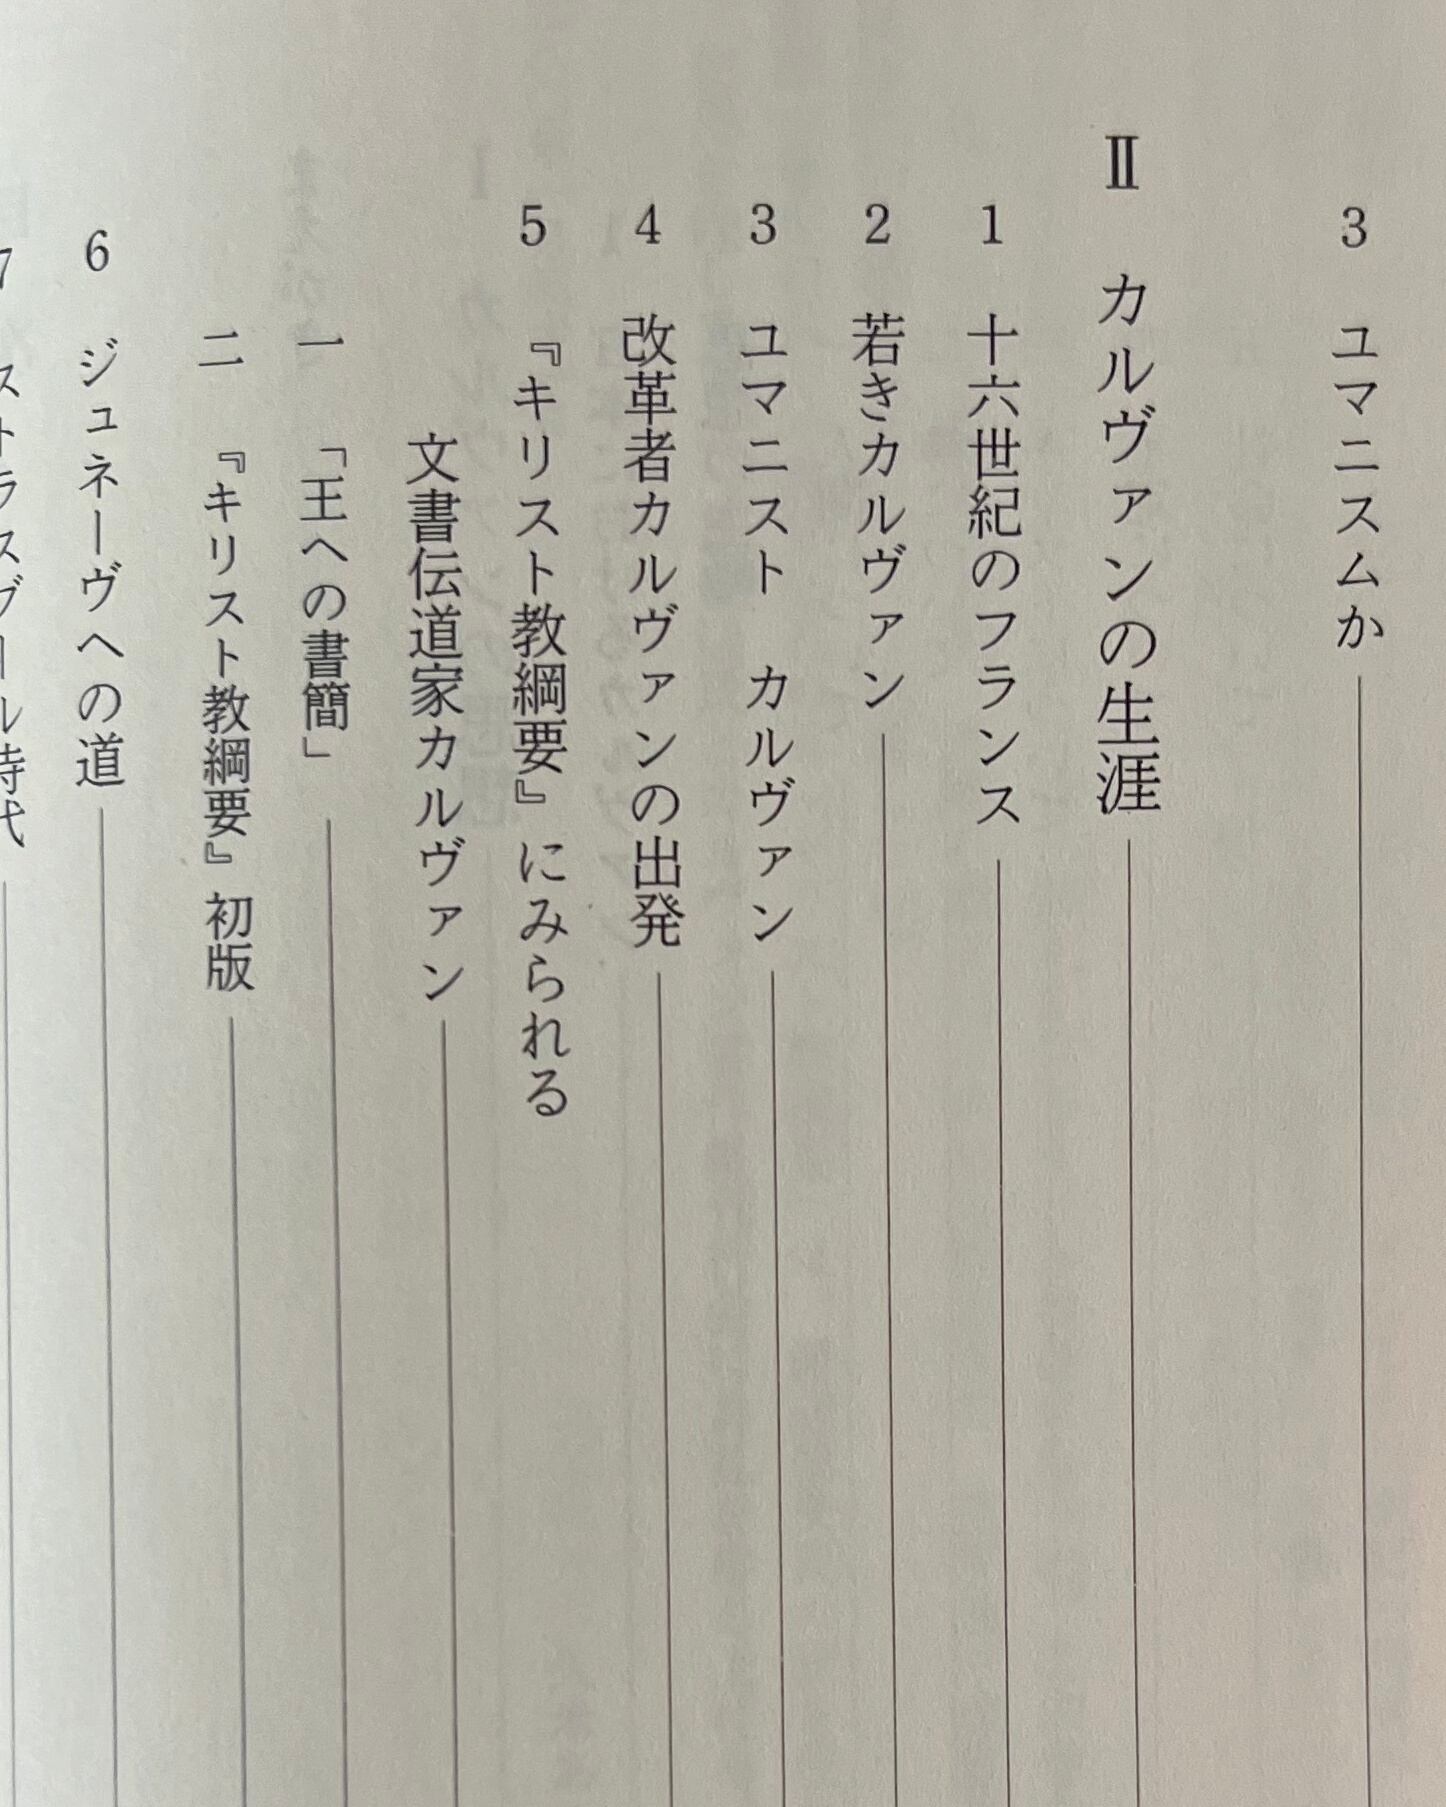 3 ユマニスムか
Ⅱ カルヴァンの生涯
1 十六世紀のフランス
2 若きカルヴァン
3 ユマニスト カルヴァン
4 改革者カルヴァンの出発
5 『キリスト教綱要』にみられる
文書伝道家カルヴァン
一 「王への書簡」
二 『キリスト教綱要』初版
6 ジュネーヴへの道
7 ストラスブール時代